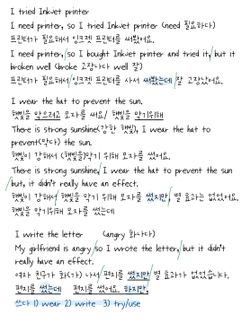 I tried Inkvet printer
I need printer, so I tried Inkvet printer (need 필요하다)
프린터가 필요해서 잉크젯 프린터를 써봤어요.
I need printer, so I bought Inkvet printer and tried it, but it
broken well (broke 고장나다 well 잘)
프린터가 필요해서 잉크젯 프린터를 사서 써봤는데 잘 고장났어요.
I wear the hat to prevent the sun.
햇빛을 막으려고 모자를 써요/ 햇빛을 막기위해
There is strong sunshine(강한 햇빛), I wear the hat to
prevent(막다) the sun.
햇빛이 강해서 (햇빛을)막기 위해 모자를 썼어요.
There is strong sunshine, I wear the hat to prevent the sun
but, it didn't really have an effect.
햇빛을 막기위해 모자를 썼지만, 별 효과는 없었어요.
햇빛을 막기위해 모자를 썼는데
I write the letter (angry 화나다)
My girlfriend is angry so I wrote the letter, but it didn't
really have an effect.
여자 친구가 화(가) 나서 편지를 썼지만 별 효과가 없었습니다.
편지를 썼는데 편지를 썼어요. 하지만,
쓰다 1) wear 2) write 3) try/use